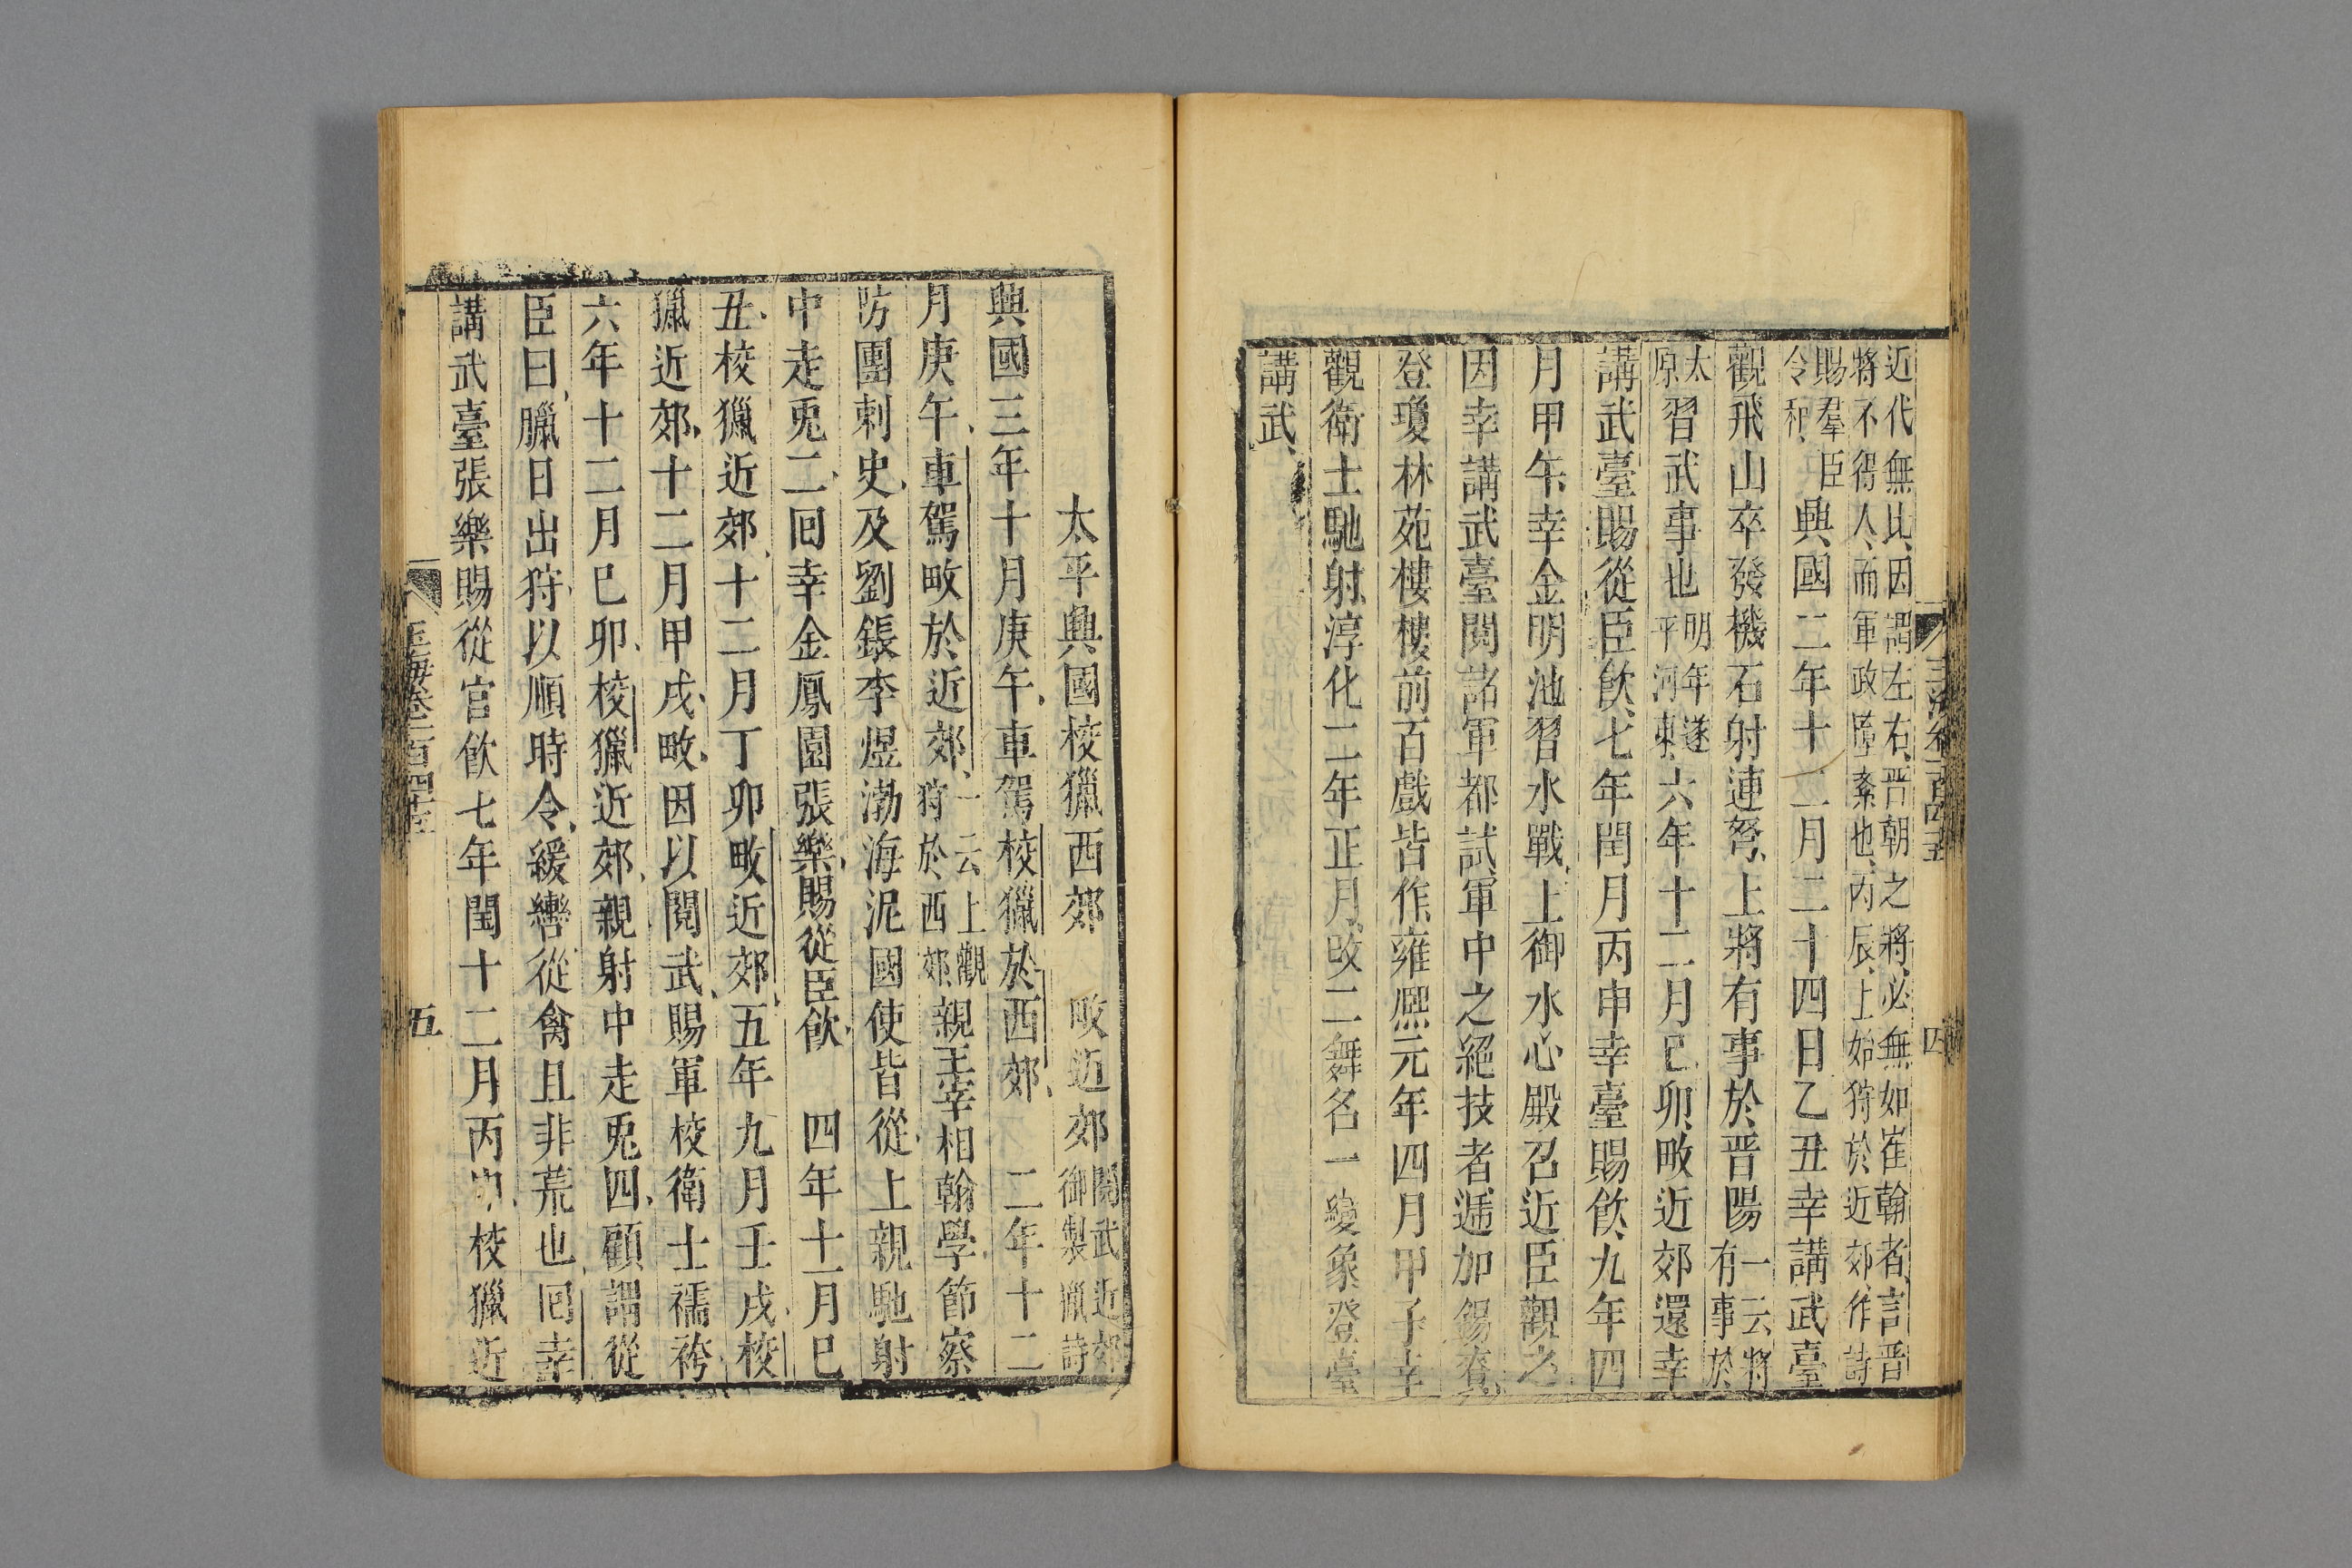 近代無比因謂左右晋朝之將必無如崔翰者言晋
將不得人而軍政隳紊也丙辰上始狩於近郊作詩
賜羣臣
令和
興國二年十二月二十四日乙丑幸講武臺
觀飛山卒發機石射連弩上將有事於晋陽
一云將
有事於
太
原
習武事也
明年遂
平河東
六年十二月巳卯畋近郊還幸
講武臺賜從臣飲七年閏月丙申幸臺賜飲九年四
月甲午幸金明池習水戰上御水心殿召近臣觀之
因幸講武臺閱諸軍都試軍中之絕技者遞加錫賚
登瓊林苑樓樓前百戲皆作雍熈元年四月甲子幸
觀衛士馳射淳化二年正月改二舞名一變象登臺
講武
玉海卷一百四十五
四
太平興國校獵西郊　畋近郊
閱武近郊
御製獵詩
興國三年十月庚午車駕校獵於西郊　二年十二
月庚午車駕畋於近郊
一云上觀
狩於西郊
親王宰相翰學節察
防團刺史及劉鋹李煜渤海泥國使皆從上親馳射
中走兎二囘幸金鳳園張樂賜從臣飲　四年十一月巳
丑校獵近郊十二月丁卯畋近郊五年九月壬戌校
獵近郊十二月甲戌畋因以閱武賜軍校衛士襦袴
六年十二月巳卯校獵近郊親射中走兎四顧謂從
臣曰臘日出狩以順時令緩轡從禽且非荒也囘幸
講武臺張樂賜從官飲七年閏十二月丙申校獵近
玉海卷一百四十五
五